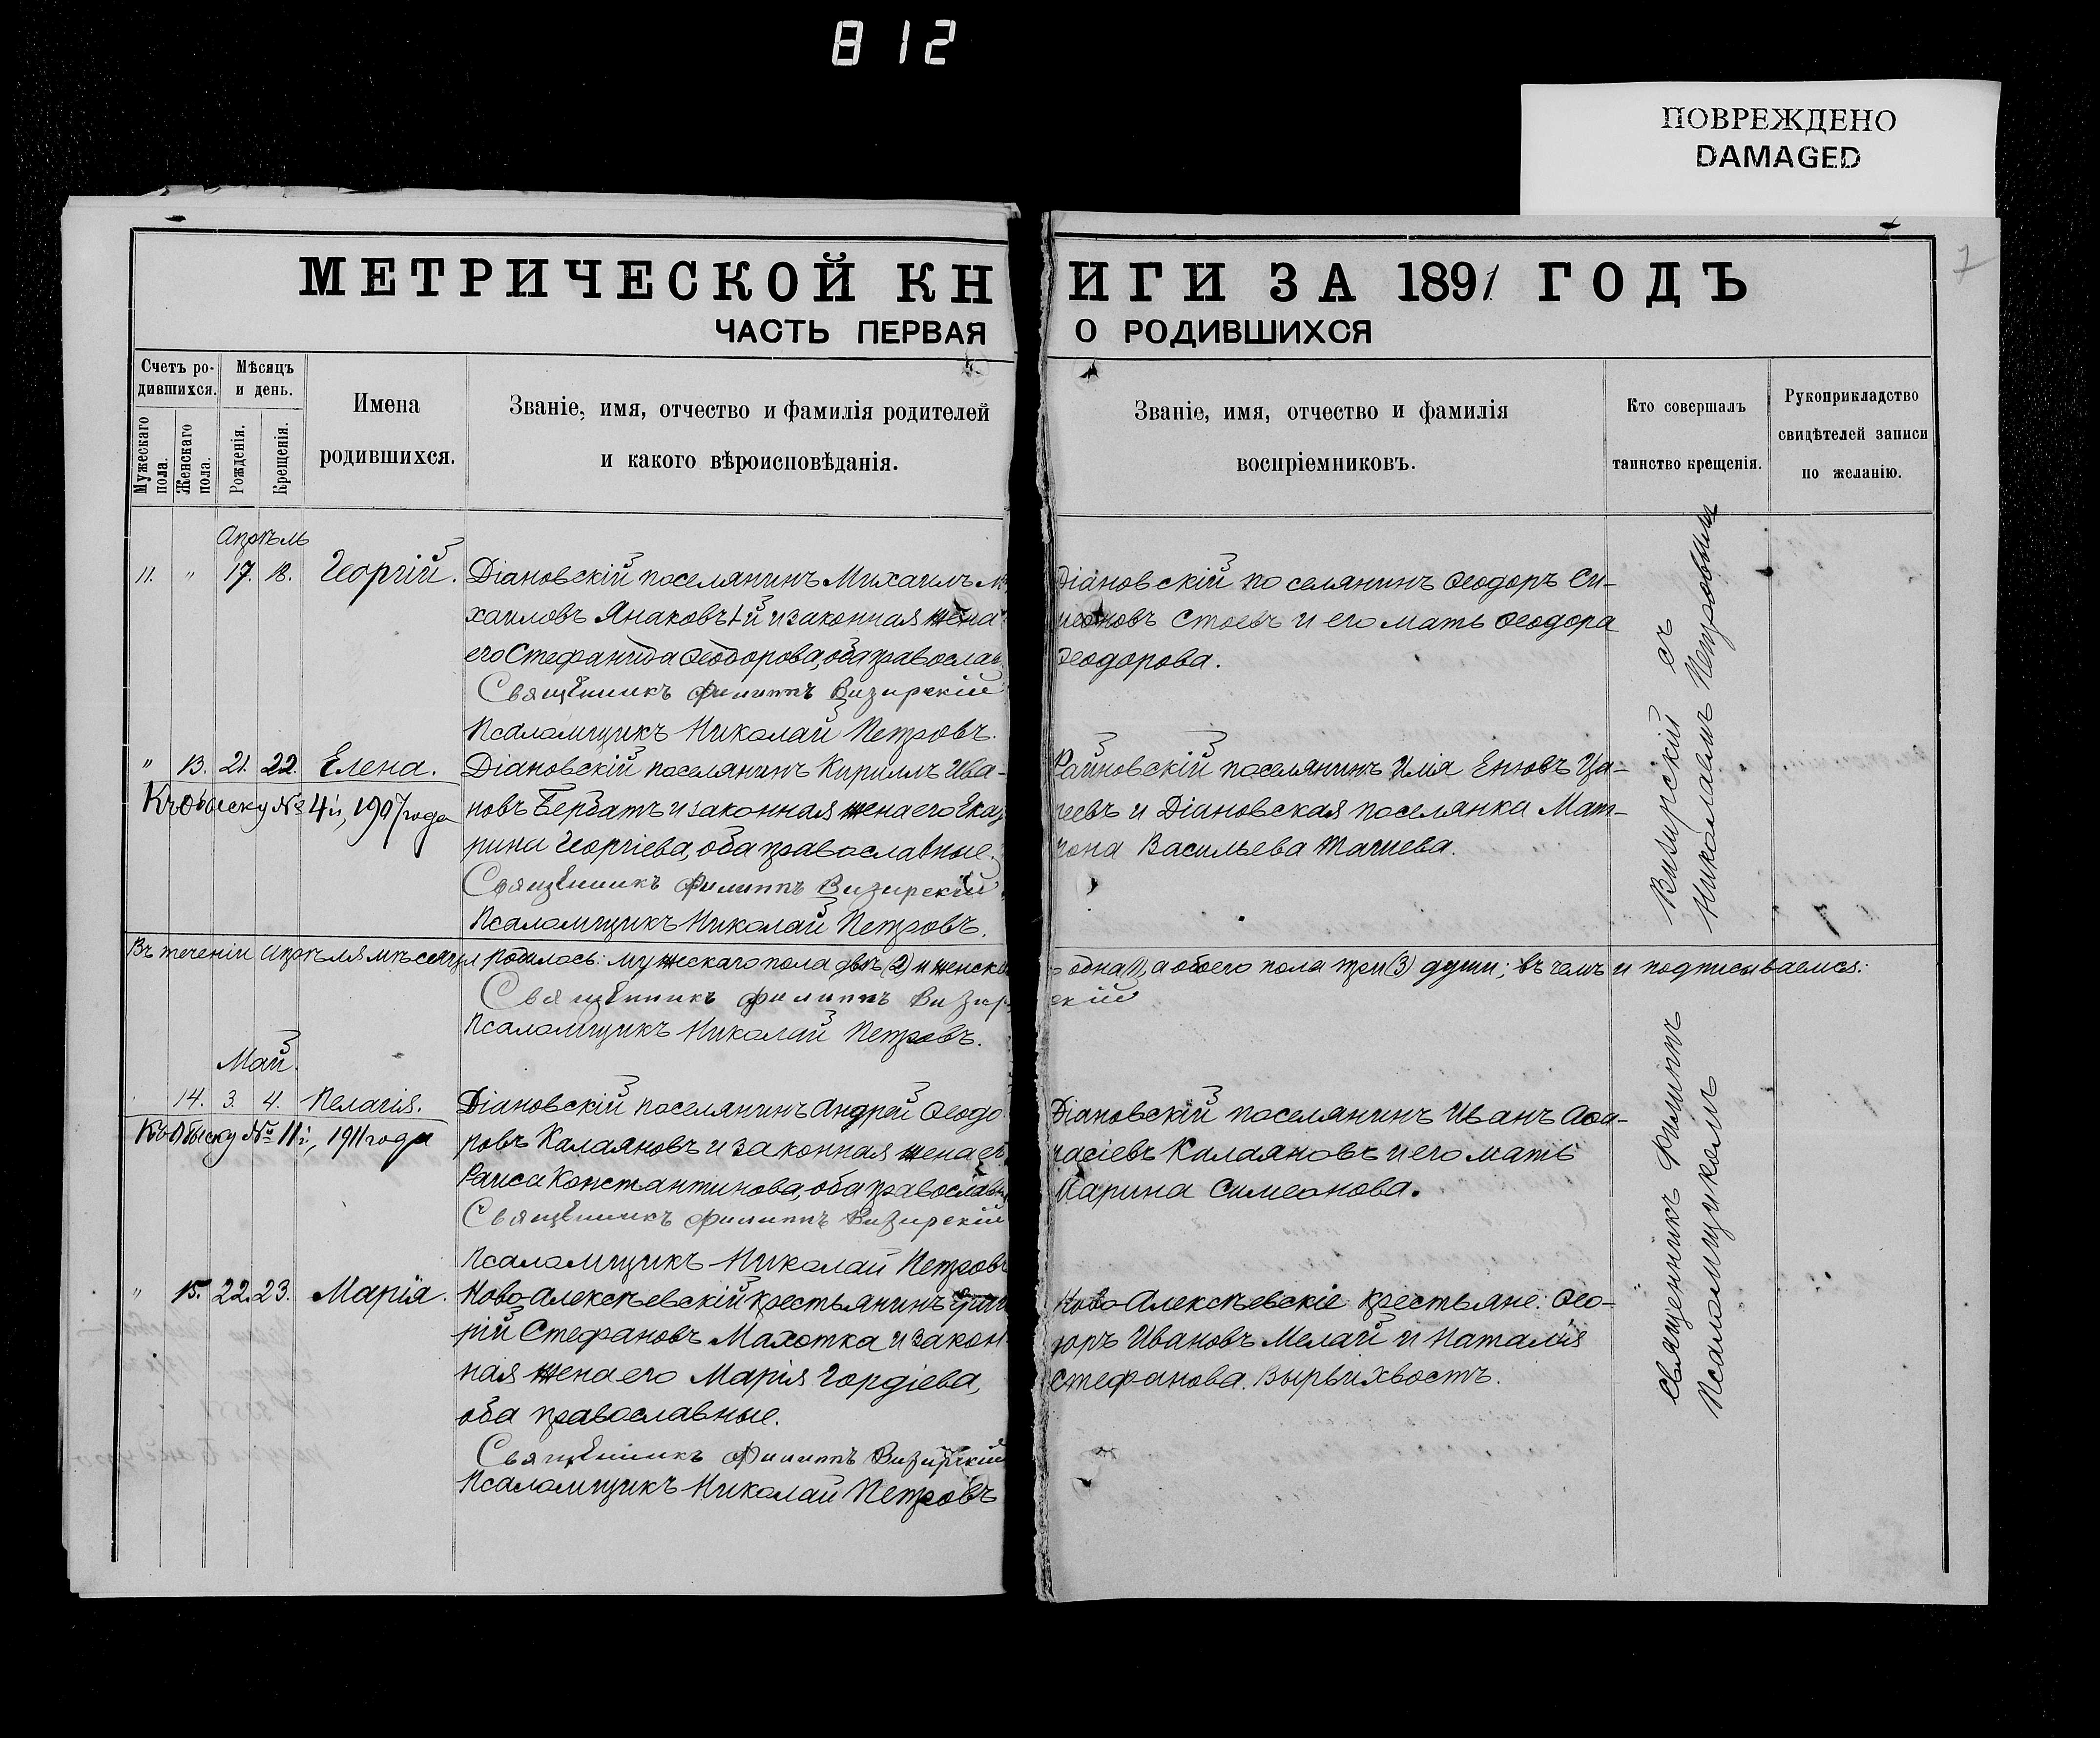 812
ПОВРЕЖДЕНО
DAMAGED
7
МЕТРИЧЕСКОЙ КНИГИ ЗА 1891 ГОДЪ
ЧАСТЬ ПЕРВАЯ О РОДИВШИХСЯ
Счетъ ро-
дившихся.
Мѣсяцъ
и день.
Мужескаго
пола.
Женскаго
пола.
Рожденія.
Крещенія.
Имена
родившихся.
Званіе, имя, отчество и фамилія родителей
и какого вѣроисповѣданія.
Званіе, имя, отчество и фамилія
воспріемниковъ.
Кто совершалъ
таинство крещенія.
Рукоприкладство
свидѣтелей записи
по желанію.
Апрѣль
11. " 17. 18. Георгій.
Діановскій поселянинъ Михаилъ Ми
хаиловъ Янаковъ 1й и законная жена
его Стефанида Ѳеодорова, оба православ
Священникъ Филиппъ Визирскій
Псаломщикъ Николай Петровъ.
Діановскій поселянинъ Ѳеодоръ Си-
меоновъ Стоевъ и его мать Ѳеодора
Ѳеодорова.
" 13. 21. 22. Елена.
Къ обыску № 4й, 1907 года
Діановскій поселянинъ Кириллъ Ива-
новъ Бербатъ и законная жена его Екат
рина Георгіева, оба православные.
Священникъ Филиппъ Визирскій
Псаломщикъ Николай Петровъ.
Райновскій поселянинъ Илія Енювъ Ца-
неевъ и Діановская поселянка Мат-
рона Васильева Тагиева.
Въ теченіи Апрѣля мѣсяца родилось: мужескаго пола двѣ (2) и женска
го одна (1), а обоего пола три (3) души; въ чемъ и подписываемся:
Священникъ Филиппъ Визирскій
Псаломщикъ Николай Петровъ.
Май.
14. 3. 4. Пелагія.
Къ обыску № 11й, 1911 года
Діановскій поселянинъ Андрей Ѳеодо
ровъ Калаяновъ и законная жена ег
Раиса Константинова, оба православн
Священникъ Филиппъ Визирскій
Псаломщикъ Николай Петровъ
Діановскій поселянинъ Иванъ Аѳа-
насіевъ Калаяновъ и его мать
Марина Симеонова.
" 15. 22. 23. Марія.
Ново-Алексѣевскій крестьянинъ Григо
рій Стефановъ Махотка и закон
ная жена его Марія Гордіева,
оба православные.
Священникъ Филиппъ Визирскій
Псаломщикъ Николай Петровъ
Ново-Алексѣевскіе крестьяне: Ѳео-
доръ Ивановъ Мелай и Наталія
Стефанова Вырвихвостъ.
Священникъ Филиппъ Визирскій съ
Псаломщикомъ Николаемъ Петровымъ